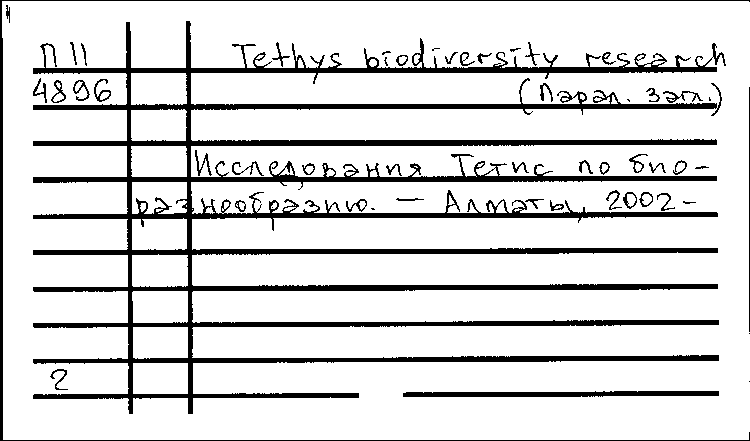 П 11 Tethys biodiversity research
4896 (Парал. загл.)
Исследования Тетис по био-
разнообразию. — Алматы, 2002-
2